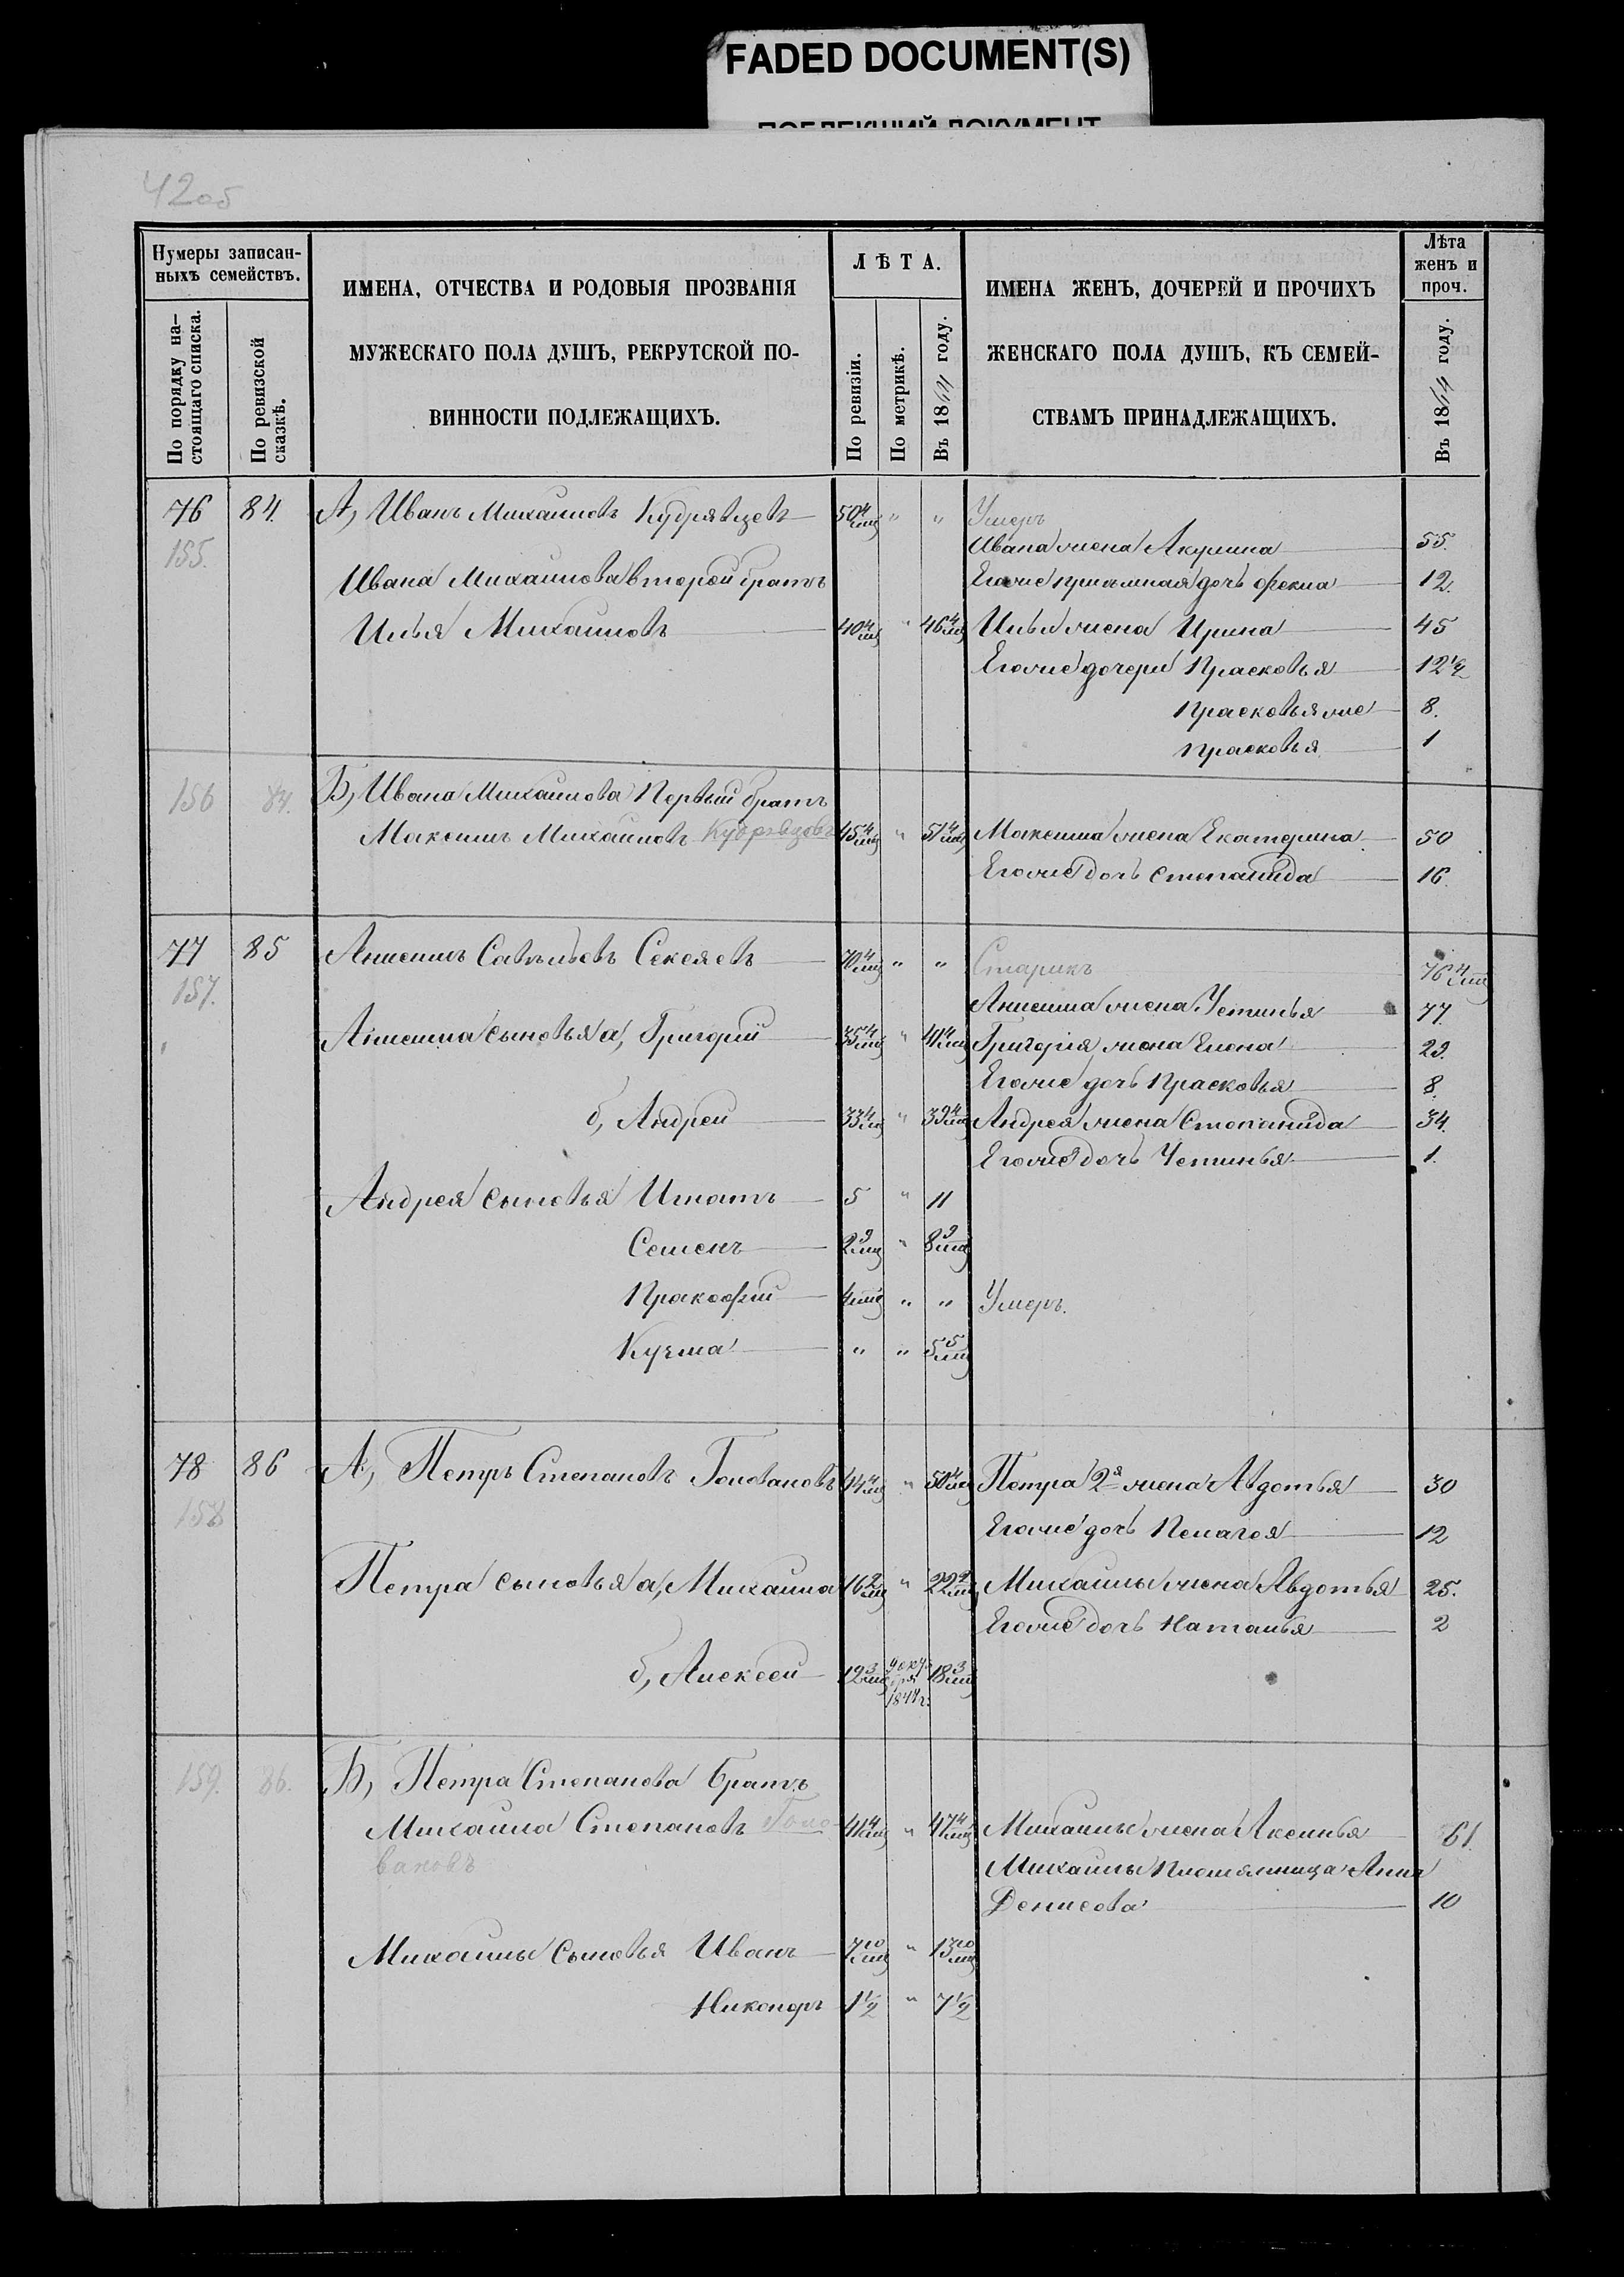 FADED DOCUMENT(S)
42 об
Нумеры записан-
ныхъ семействъ.
По порядку на-
стоящаго списка.
По ревизской
сказкѣ.
ИМЕНА, ОТЧЕСТВА И РОДОВЫЯ ПРОЗВАНІЯ
МУЖЕСКАГО ПОЛА ДУШЪ, РЕКРУТСКОЙ ПО-
ВИННОСТИ ПОДЛЕЖАЩИХЪ.
ЛѢТА.
По ревизіи.
По метрикѣ.
Въ 1864 году.
ИМЕНА ЖЕНЪ, ДОЧЕРЕЙ И ПРОЧИХЪ
ЖЕНСКАГО ПОЛА ДУШЪ, КЪ СЕМЕЙ-
СТВАМЪ ПРИНАДЛЕЖАЩИХЪ.
Лѣта
женъ и
проч.
Въ 1864 году.
76 84. А, Иванъ Михаиловъ Кудрявцевъ 50 4/мц " " Умеръ
155. Ивана жена Акулина 55.
Ивана Михаилова второй братъ Его же приемная дочь Фекла 12.
Илья Михаиловъ 40 4/мц " 46 4/мц Ильи жена Ирина 45
Его же дочери Прасковья 12 1/2
Прасковья же 8.
Прасковья 1
156 84. Б, Ивана Михаилова Первый братъ
Максимъ Михаиловъ Кудрявцовъ 45 4/мц " 51 4/мц Максима жена Екатерина 50
Его же дочь Степанида 16.
77 85 Анисимъ Савельевъ Сексяевъ 70 4/мц " " Старикъ 76 4/мц
157. Анисима жена Устинья 77.
Анисима сыновья а, Григорий 35 4/мц " 41 4/мц Григория жена Елена 29.
Его же дочь Прасковья 8.
б, Андрей 33 4/мц " 39 4/мц Андрея жена Степанида 34.
Его же дочь Устинья 1.
Андрея сыновья Игнатъ 5 " 11
Семенъ 2 9/мц " 8 9/мц
Пракофий 4 мц " " Умеръ.
Кузма " " 5 5/мц
78 86 А, Петръ Степановъ Головановъ 44 4/мц " 50 4/мц Петра 2я жена Авдотья 30
158 Его же дочь Пелагея 12
Петра сыновья а, Михаила 16 2/мц " 22 2/мц Михаилы жена Авдотья 25.
Его же дочь Наталья 2
б, Алексей 12 3/мц 1844 г. 18 3/мц
159. 86. Б, Петра Степанова братъ
Михаила Степановъ Голо- 41 4/мц " 47 4/мц Михаилы жена Аксинья 61.
вановъ Михаилы племянница Анна
Денисова 10
Михаилы сыновья Иванъ 7 10/мц " 13 10/мц
Никоноръ 1 1/2 " 7 1/2